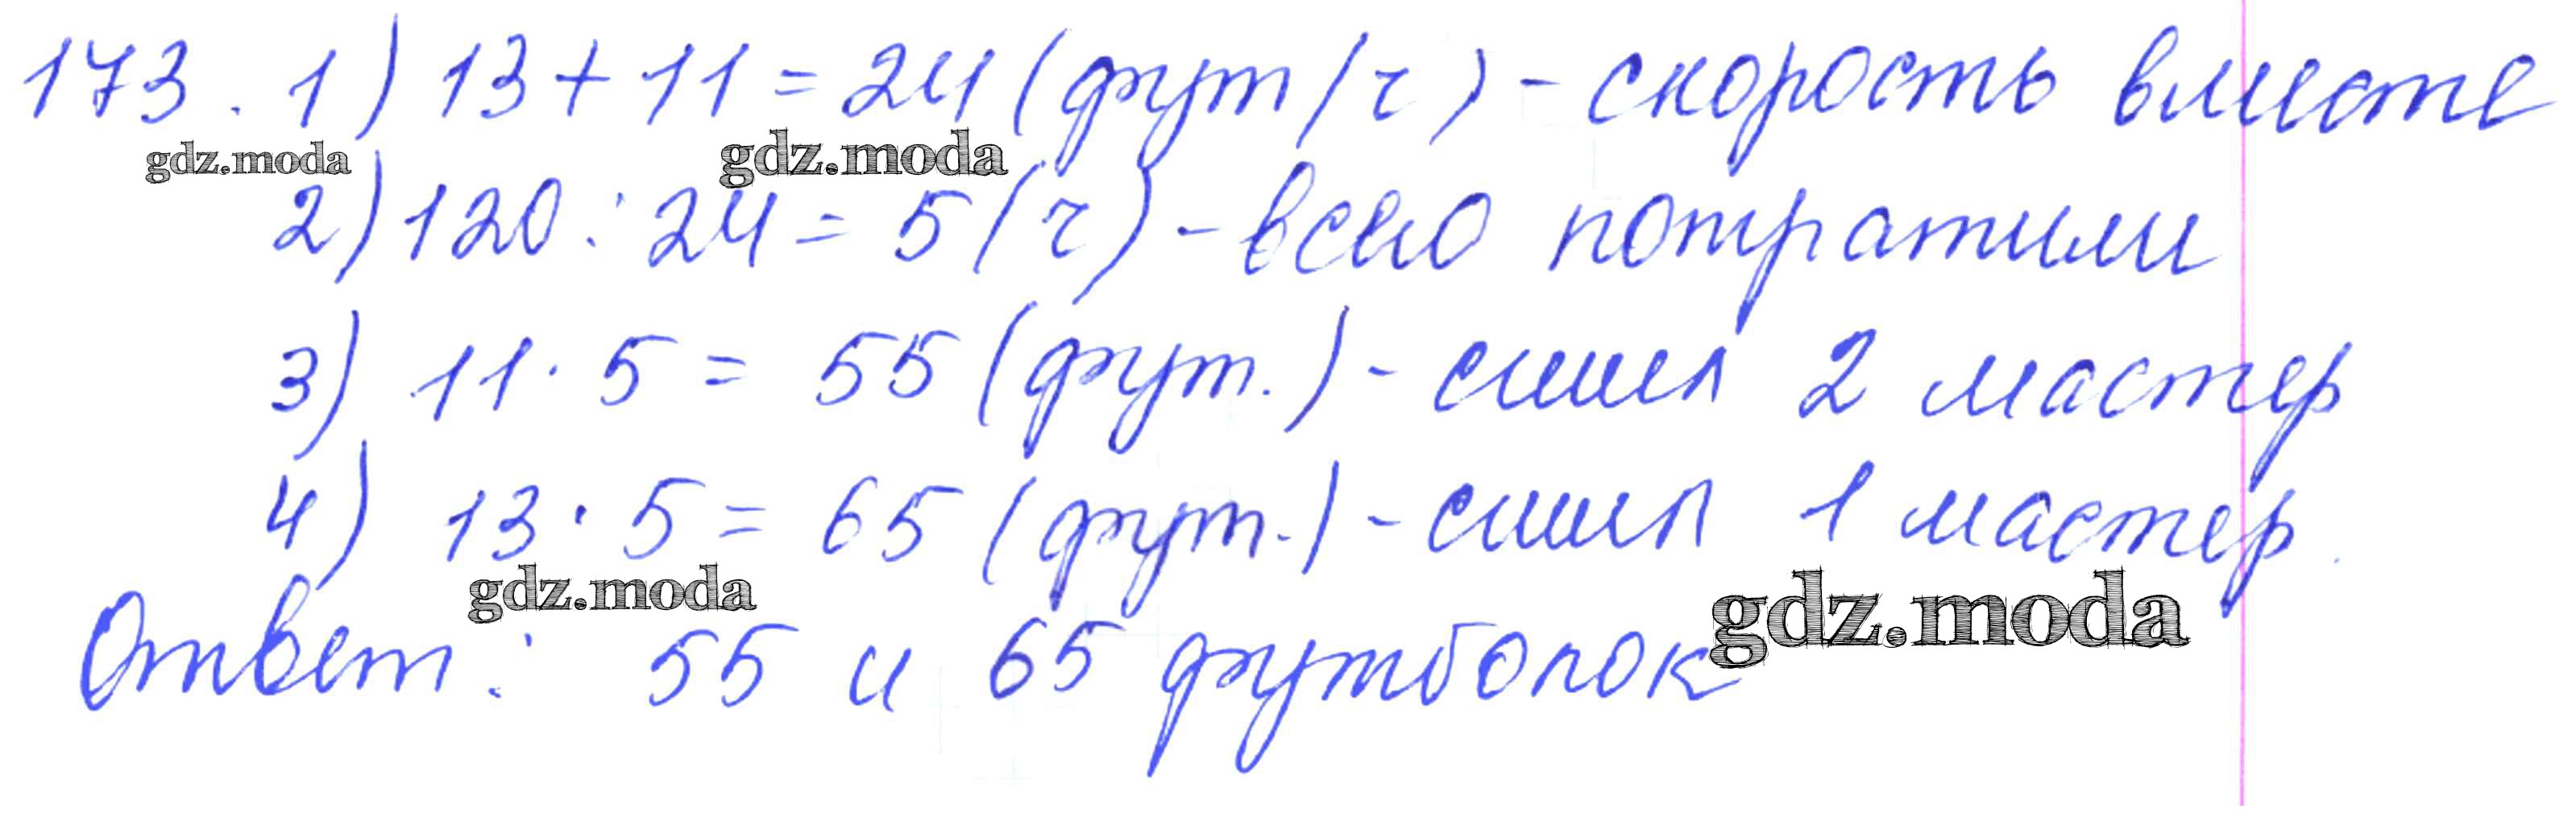 173. 1) 13+11=24 (фут/ч) - скорость вместе
gdz.moda gdz.moda
2) 120 : 24 = 5 (ч) - всего потратили
3) 11 · 5 = 55 (фут.) - сшил 2 мастер
4) 13 · 5 = 65 (фут.) - сшил 1 мастер.
gdz.moda gdz.moda
Ответ: 55 и 65 футболок